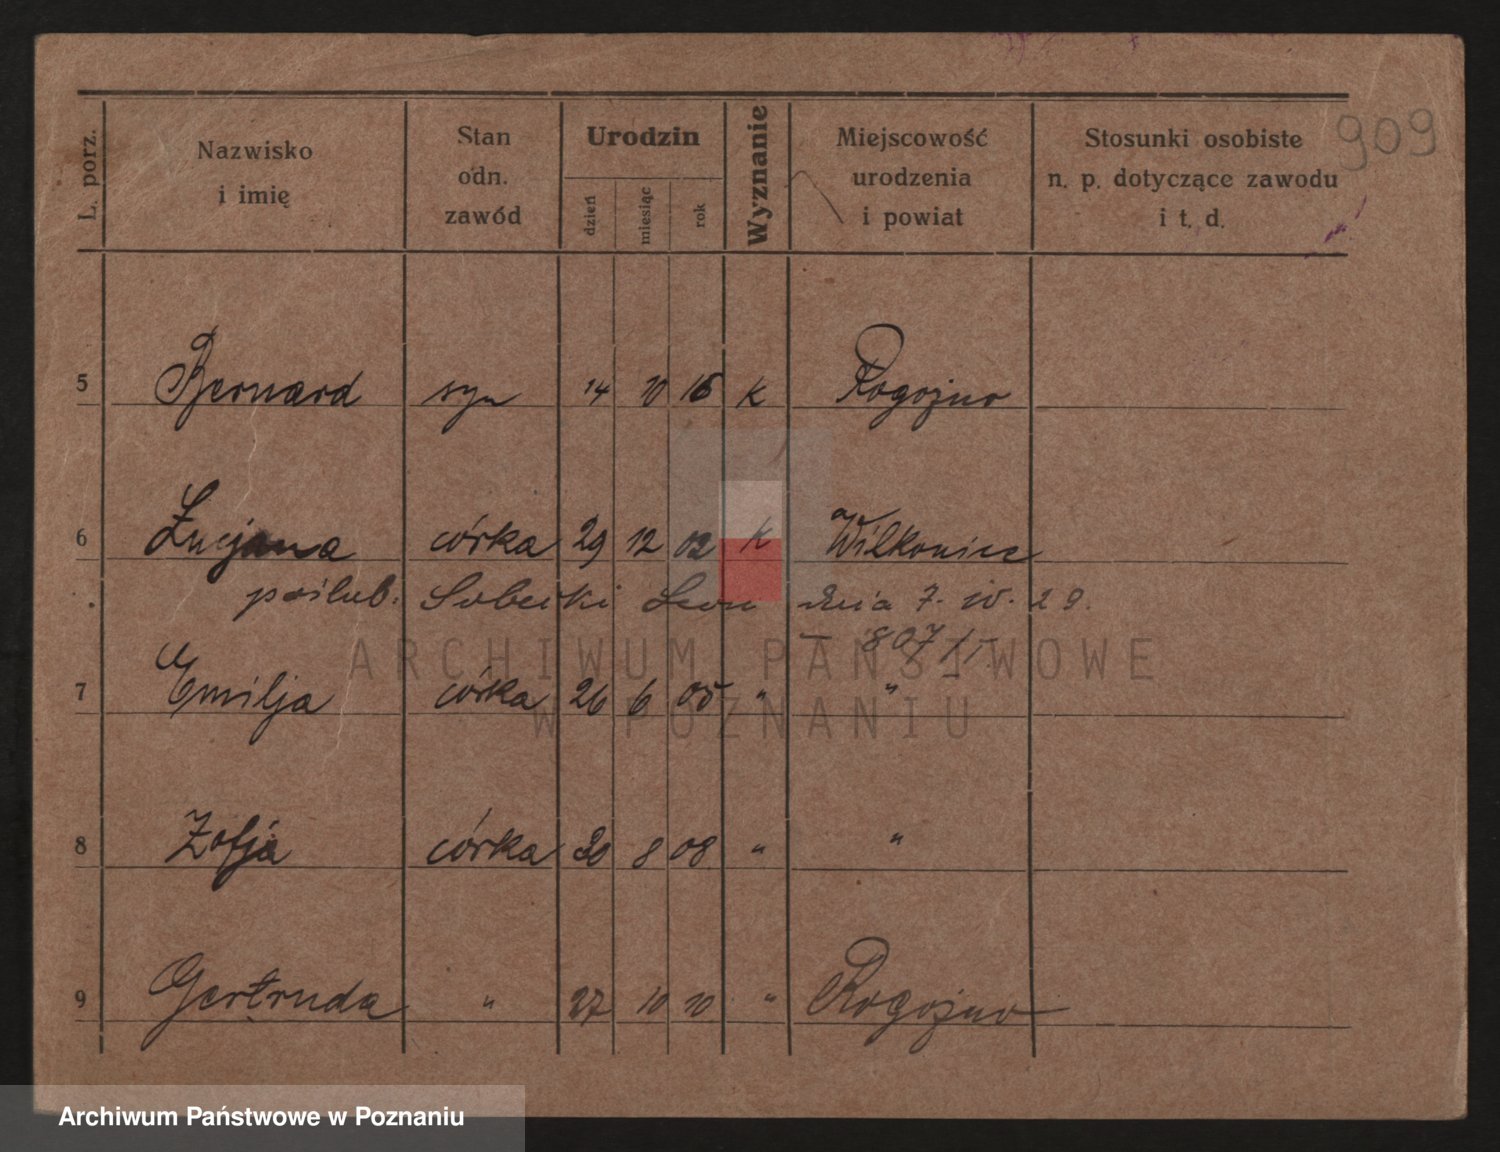 909
L. porz. Nazwisko i imię Stan odn. zawód Urodzin dzień miesiąc rok Wyznanie Miejscowość urodzenia i powiat Stosunki osobiste n. p. dotyczące zawodu i t. d.
5 Bernard syn 14 10 16 K Rogoźno
6 Lucjana córka 29 12 02 K Wilkonice
poślub. Sobecki Leon dnia 7. IV. 29.
— 807/
7 Emilja córka 26 6 05 " "
8 Zofja córka 30 8 08 " "
9 Gertruda " 27 10 10 " Rogoźno
ARCHIWUM PAŃSTWOWE
W POZNANIU
Archiwum Państwowe w Poznaniu